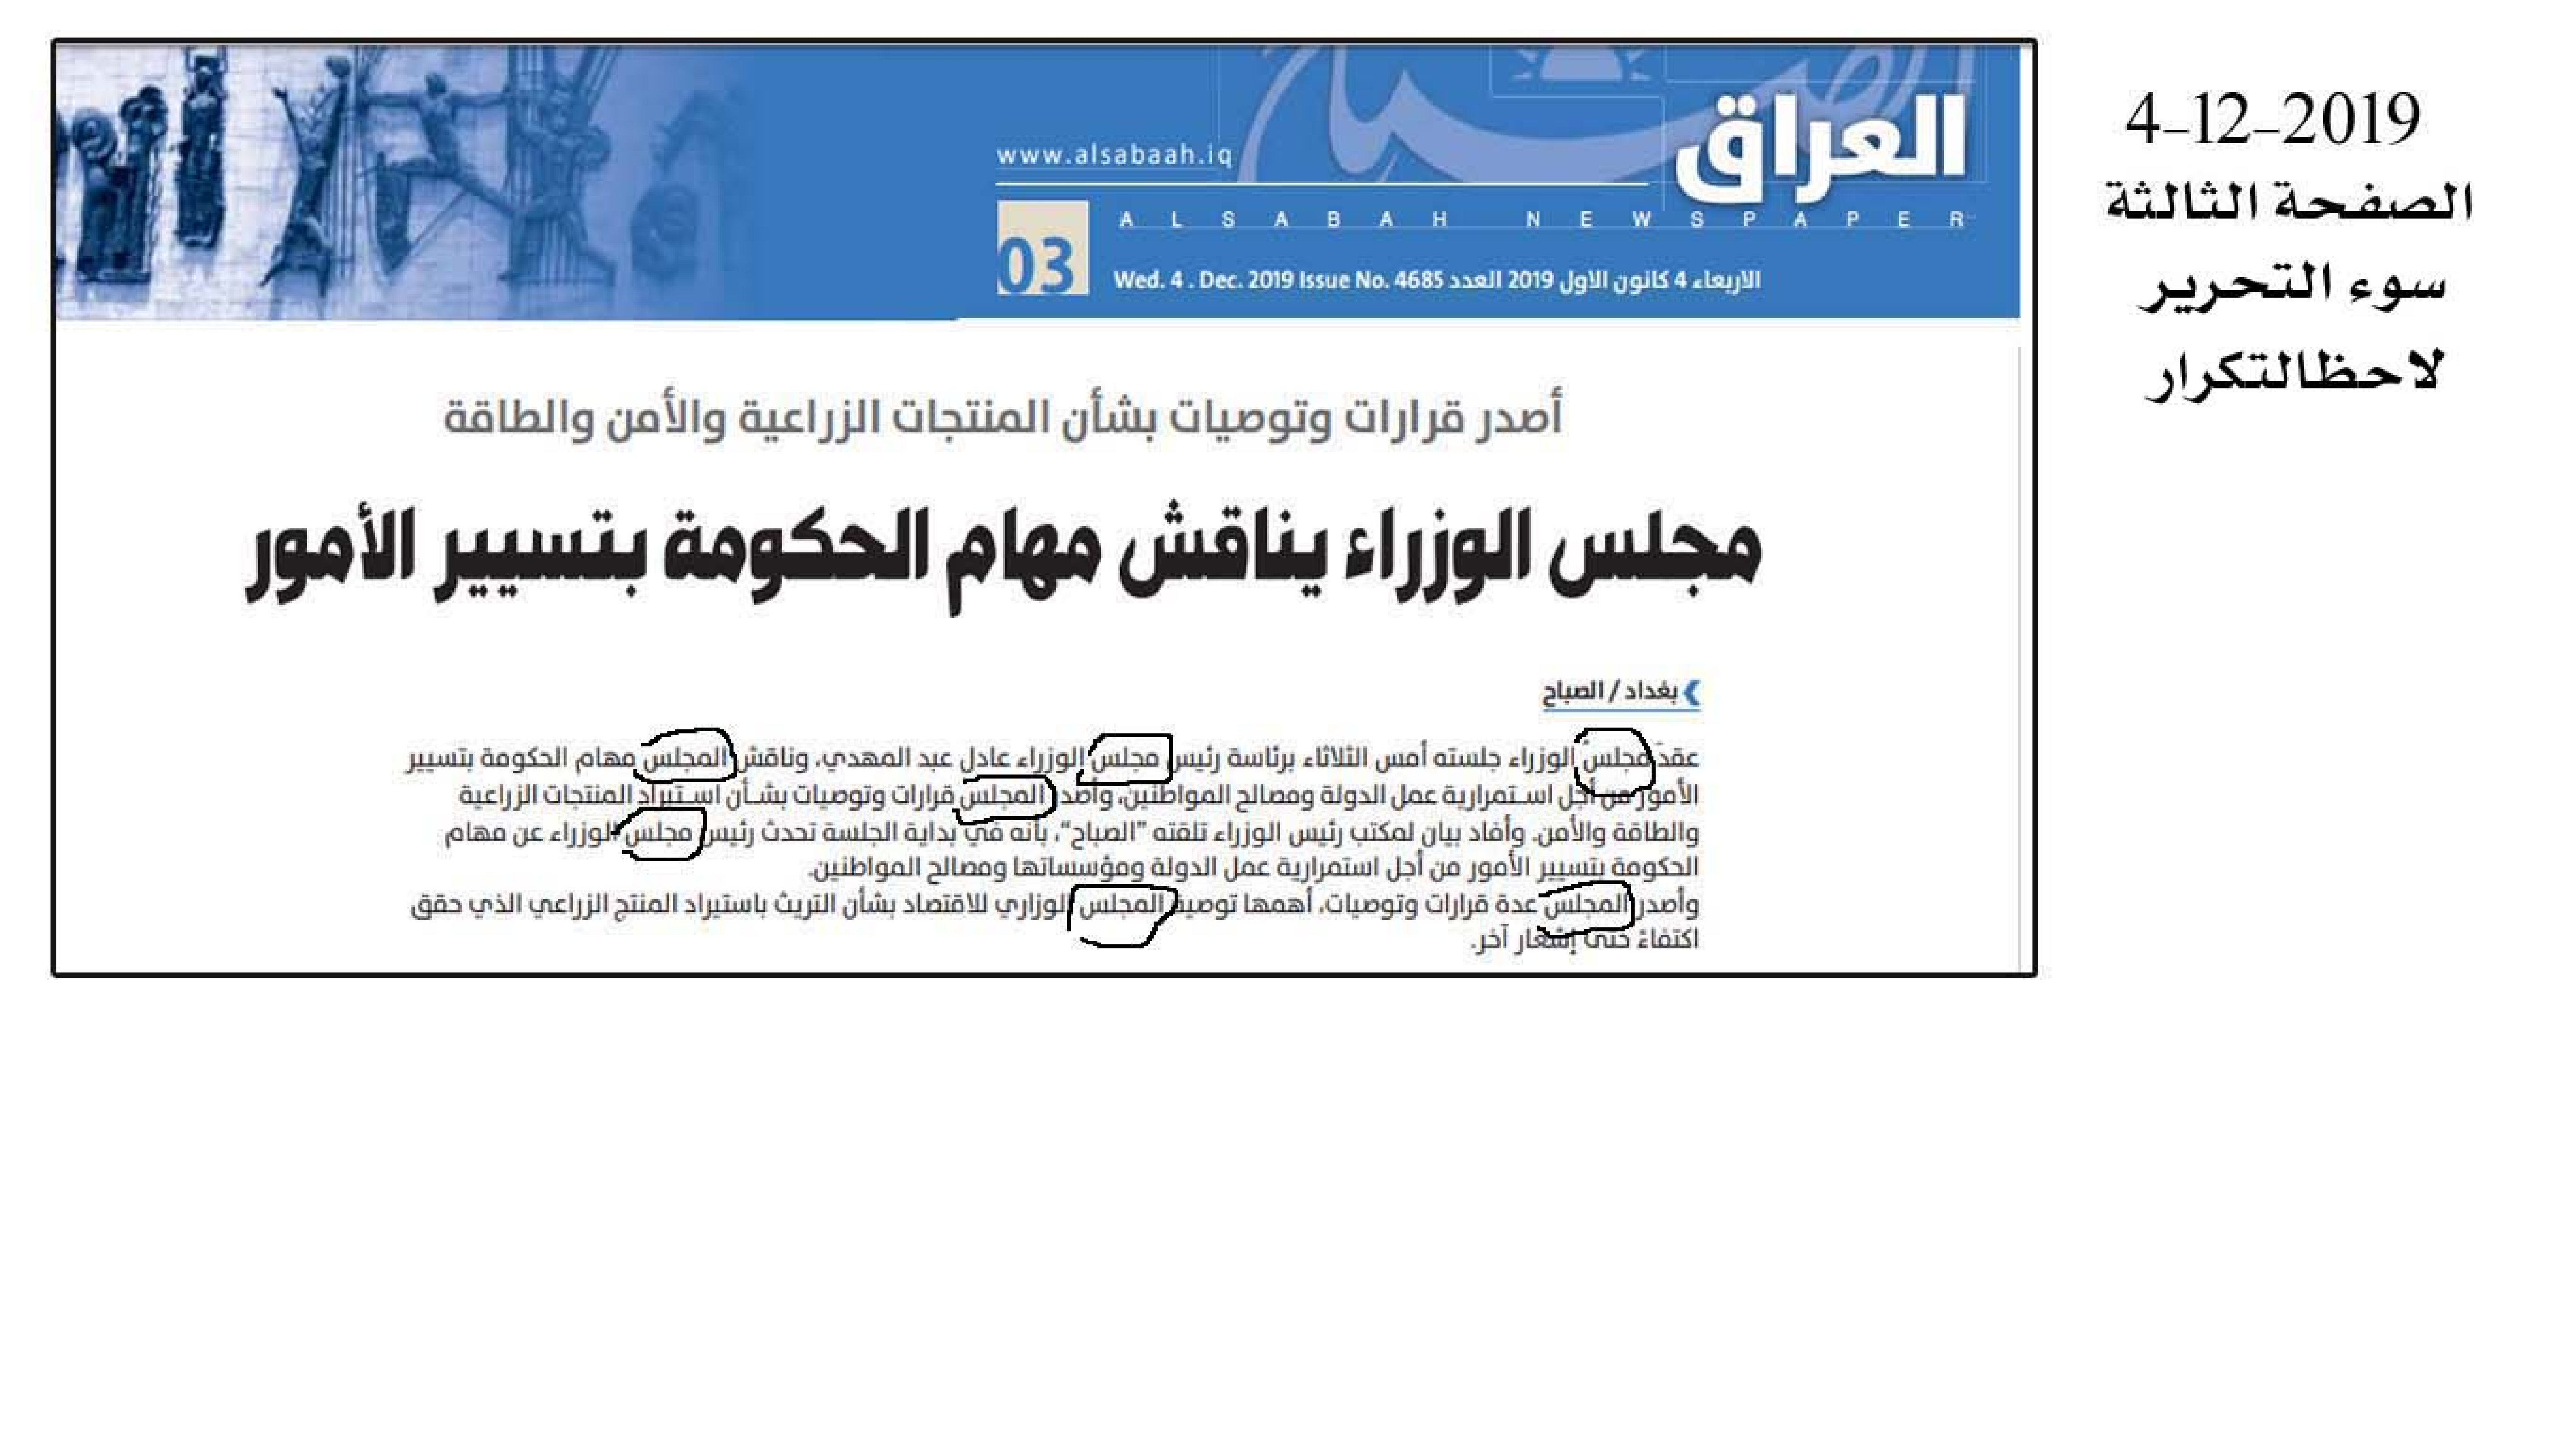 4-12-2019
الصفحة الثالثة
سوء التحرير
لاحظالتكرار
الصباح
العراق
www.alsabaah.iq
ALSABAH NEWSPAPER
03
الاربعاء 4 كانون الاول 2019 العدد Wed. 4 . Dec. 2019 Issue No. 4685
أصدر قرارات وتوصيات بشأن المنتجات الزراعية والأمن والطاقة
مجلس الوزراء يناقش مهام الحكومة بتسيير الأمور
بغداد / الصباح
عقدَ مجلسُ الوزراء جلسته أمس الثلاثاء برئاسة رئيس مجلس الوزراء عادل عبد المهدي، وناقش المجلس مهام الحكومة بتسيير
الأمور من أجل استمرارية عمل الدولة ومصالح المواطنين، وأصدر المجلس قرارات وتوصيات بشأن استيراد المنتجات الزراعية
والطاقة والأمن. وأفاد بيان لمكتب رئيس الوزراء تلقته "الصباح"، بأنه في بداية الجلسة تحدث رئيس مجلس الوزراء عن مهام
الحكومة بتسيير الأمور من أجل استمرارية عمل الدولة ومؤسساتها ومصالح المواطنين.
وأصدر المجلس عدة قرارات وتوصيات، أهمها توصية المجلس الوزاري للاقتصاد بشأن التريث باستيراد المنتج الزراعي الذي حقق
اكتفاءً حتى إشعار آخر.